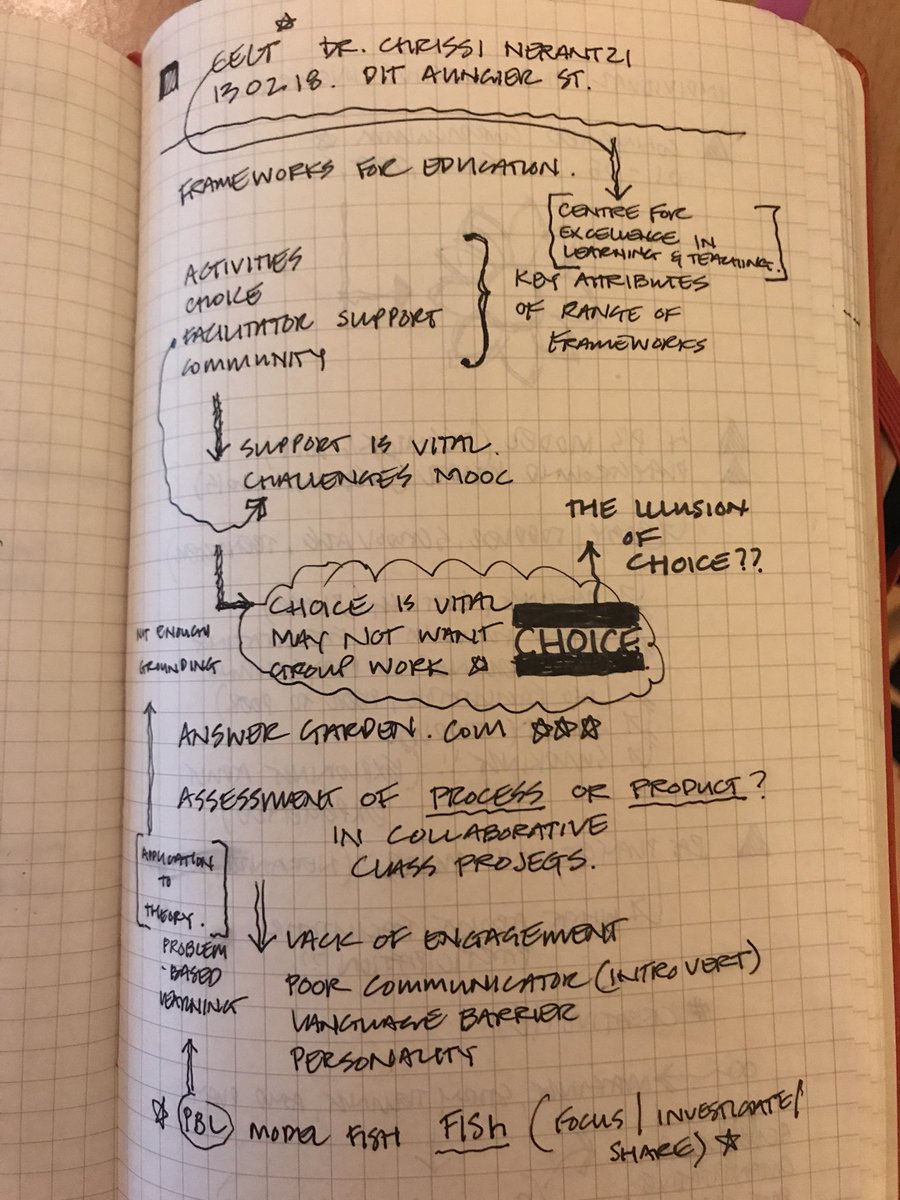 CELT DR. CHRISSI NERANTZI
13 02 18. DIT AUNGIER ST.
FRAMEWORKS FOR EDUCATION.
[CENTRE FOR
EXCELLENCE IN
LEARNING & TEACHING.]
ACTIVITIES
CHOICE
FACILITATOR SUPPORT
COMMUNITY
KEY ATTRIBUTES
OF RANGE OF
FRAMEWORKS
SUPPORT IS VITAL.
CHALLENGES MOOC
THE ILLUSION
OF
CHOICE??
CHOICE IS VITAL
MAY NOT WANT
GROUP WORK
CHOICE
NOT ENOUGH
GROUNDING
ANSWER GARDEN.COM
ASSESSMENT OF PROCESS OR PRODUCT?
IN COLLABORATIVE
CLASS PROJECTS.
[APPLICATION
TO
THEORY.]
PROBLEM
-BASED
LEARNING
LACK OF ENGAGEMENT
POOR COMMUNICATOR (INTROVERT)
LANGUAGE BARRIER
PERSONALITY
PBL MODEL FISH FISh (FOCUS/INVESTIGATE/
SHARE)